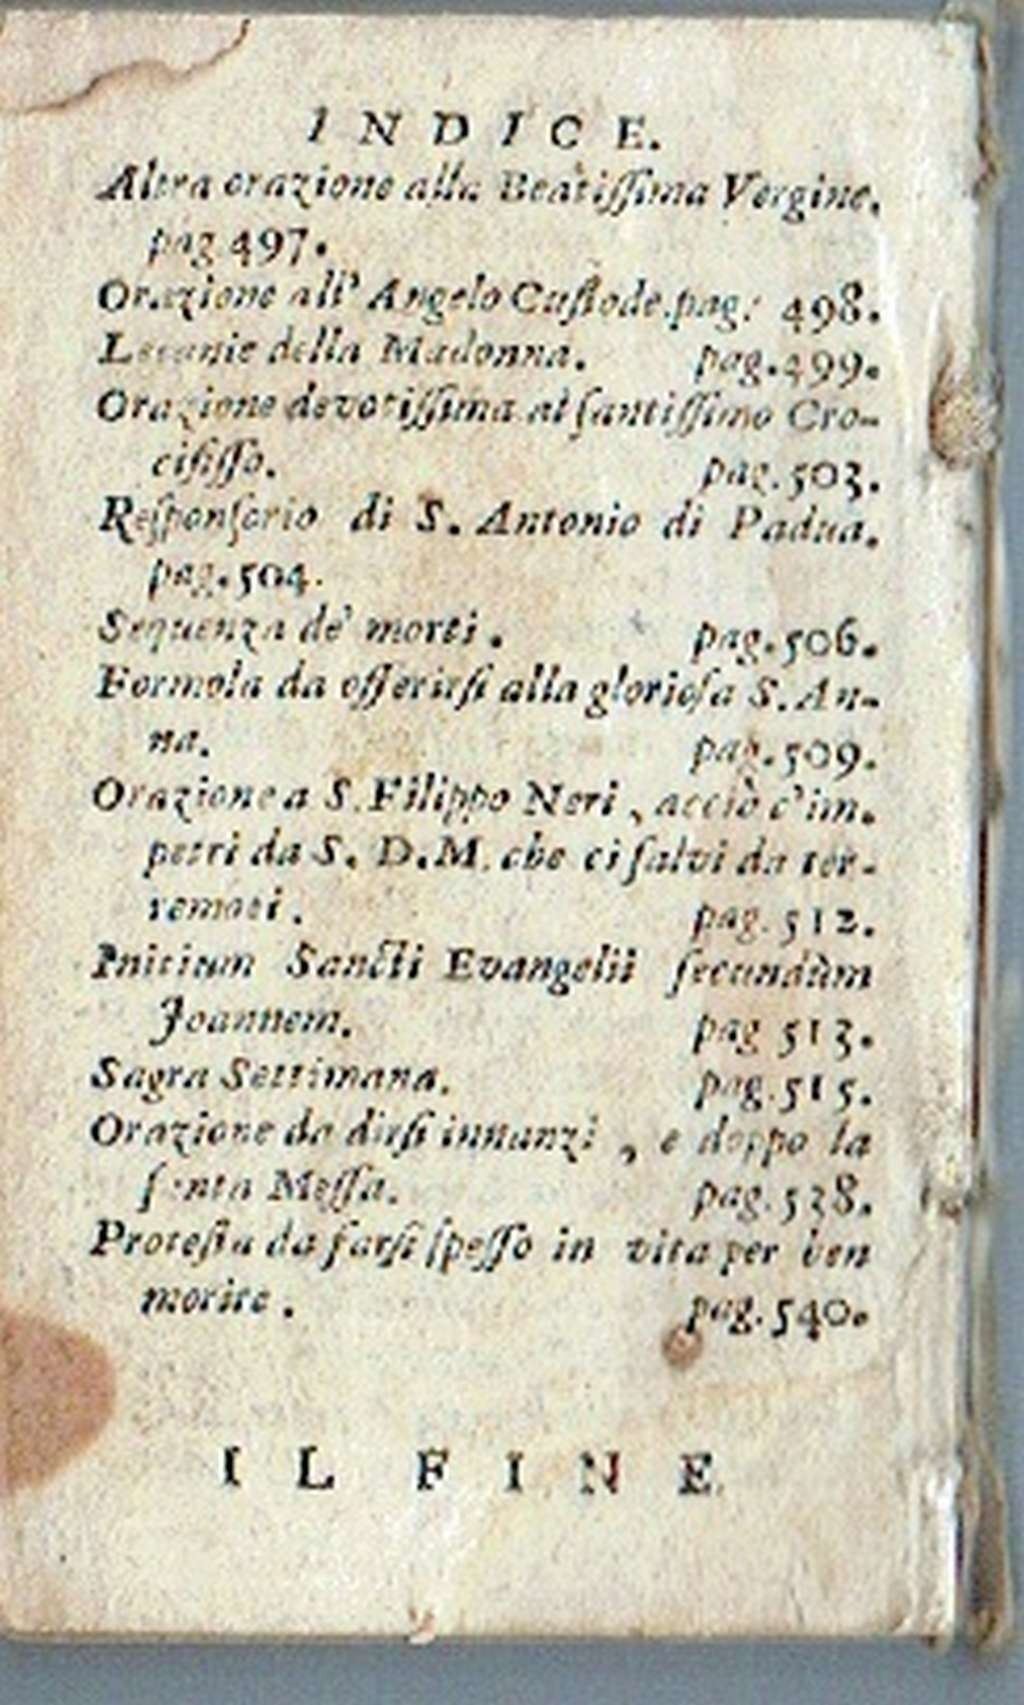 INDICE.
Altra orazione alla Beatissima Vergine.
pag 497.
Orazione all' Angelo Custode.pag: 498.
Letanie della Madonna. pag.499.
Orazione devotissima al santissimo Cro-
cifisso. pag.503.
Responsorio di S. Antonio di Padua.
pag.504.
Sequenza de' morti. pag.506.
Formola da offerirsi alla gloriosa S. An-
na. pag.509.
Orazione a S. Filippo Neri, acciò c'im-
petri da S. D.M. che ci salvi da ter-
remoti. pag. 512.
Initium Sancti Evangelii secundùm
Joannem. pag 513.
Sagra Settimana. pag.515.
Orazione da dirsi innanzi, e doppo la
santa Messa. pag.538.
Protesta da farsi spesso in vita per ben
morire. pag.540.
IL FINE